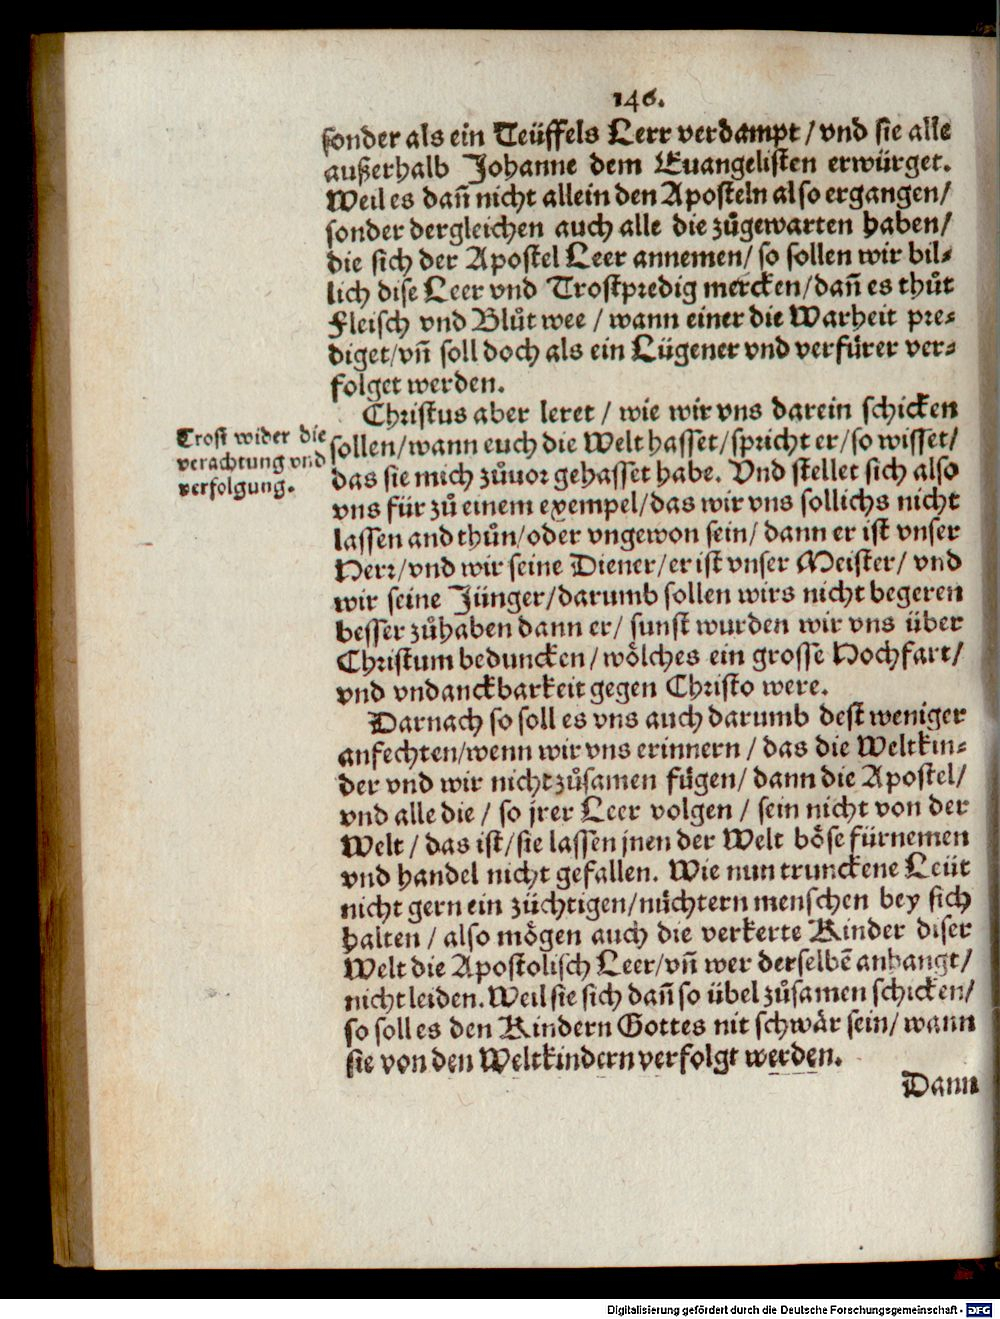 146.
sonder als ein Teüffels Lerr verdampt / vnd sie alle
außerhalb Johanne dem Euangelisten erwürget.
Weil es dañ nicht allein den Aposteln also ergangen/
sonder dergleichen auch alle die zůgewarten haben/
die sich der Apostel Leer annemen/ so sollen wir bil⸗
lich dise Leer vnd Trostpredig mercken/ dañ es thůt
Fleisch vnd Blůt wee / wann einer die Warheit pre⸗
diget/vñ soll doch als ein Lügener vnd verfürer ver⸗
folget werden.
Christus aber leret / wie wir vns darein schicken
Trost wider die
verachtung vnd
verfolgung.
sollen/wann euch die Welt hasset/spricht er/so wisset/
das sie mich zůuor gehasset habe. Vnd stellet sich also
vns für zů einem exempel/das wir vns sollichs nicht
lassen and thůn/oder vngewon sein/ dann er ist vnser
Herr/vnd wir seine Diener/er ist vnser Meister/ vnd
wir seine Jünger/darumb sollen wirs nicht begeren
besser zůhaben dann er/ sunst wurden wir vns über
Christum beduncken/ wölches ein grosse Hochfart/
vnd vndanckbarkeit gegen Christo were.
Darnach so soll es vns auch darumb dest weniger
anfechten/wenn wir vns erinnern / das die Weltkin⸗
der vnd wir nicht zůsamen fügen/ dann die Apostel/
vnd alle die / so jrer Leer volgen / sein nicht von der
Welt / das ist/sie lassen jnen der Welt böse fürnemen
vnd handel nicht gefallen. Wie nun trunckene Leüt
nicht gern ein züchtigen/nüchtern menschen bey sich
halten / also mögen auch die verkerte Kinder diser
Welt die Apostolisch Leer/vñ wer derselbẽ anhangt/
nicht leiden. Weil sie sich dañ so übel zůsamen schicken/
so soll es den Kindern Gottes nit schwär sein/ wann
sie von den Weltkindern verfolgt werden.
Dann
Digitalisierung gefördert durch die Deutsche Forschungsgemeinschaft - DFG